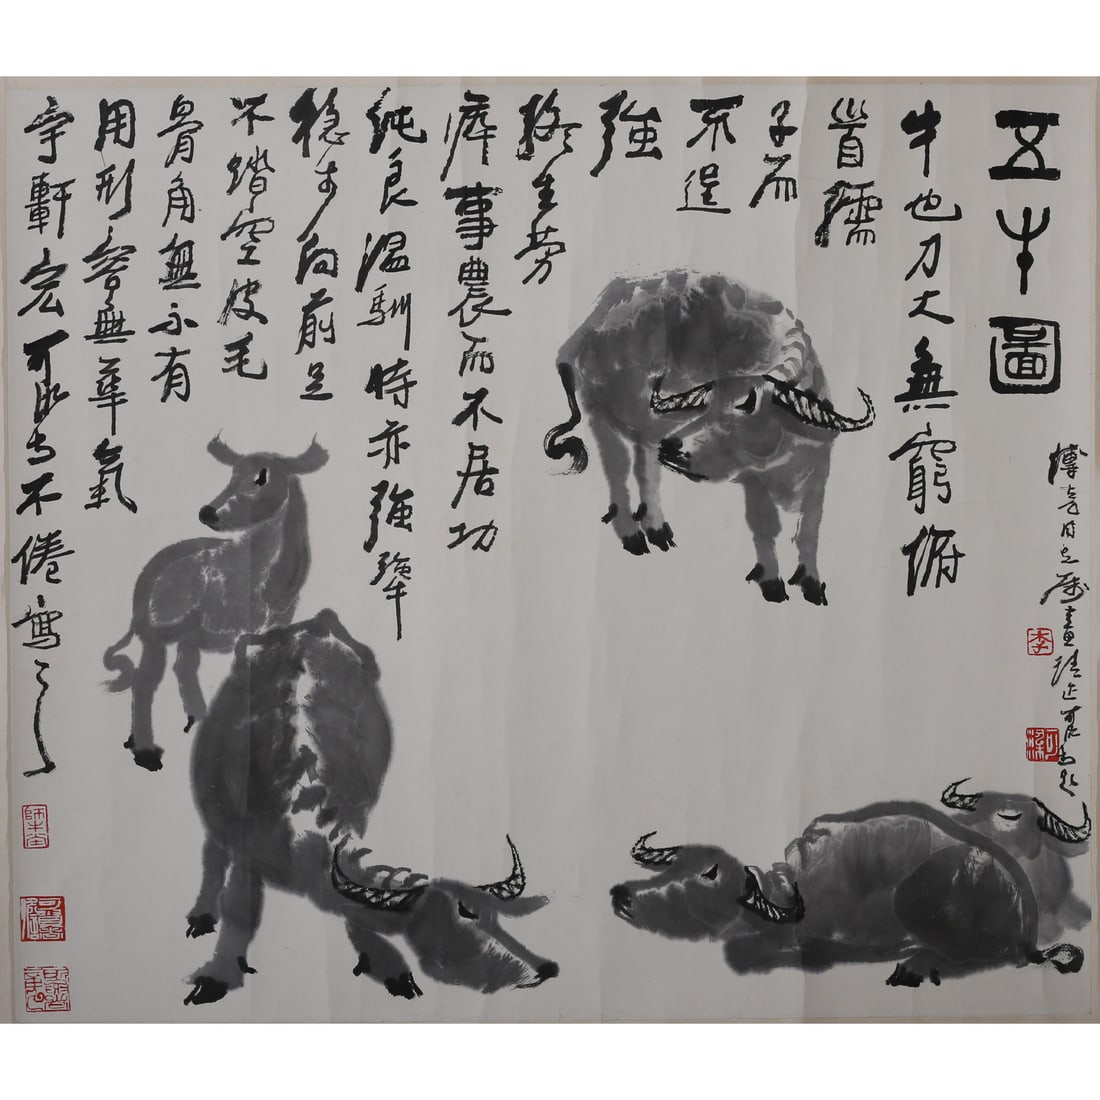 五牛圖
牛也力大無窮俯
首孺
子而
不逞
強
終生勞
瘁事農而不居功
純良溫馴時亦強犟
穩步向前足
不踏空皮毛
骨角無不有
用形容無華氣
宇軒宏可染不倦寫之
可染
李
師牛堂